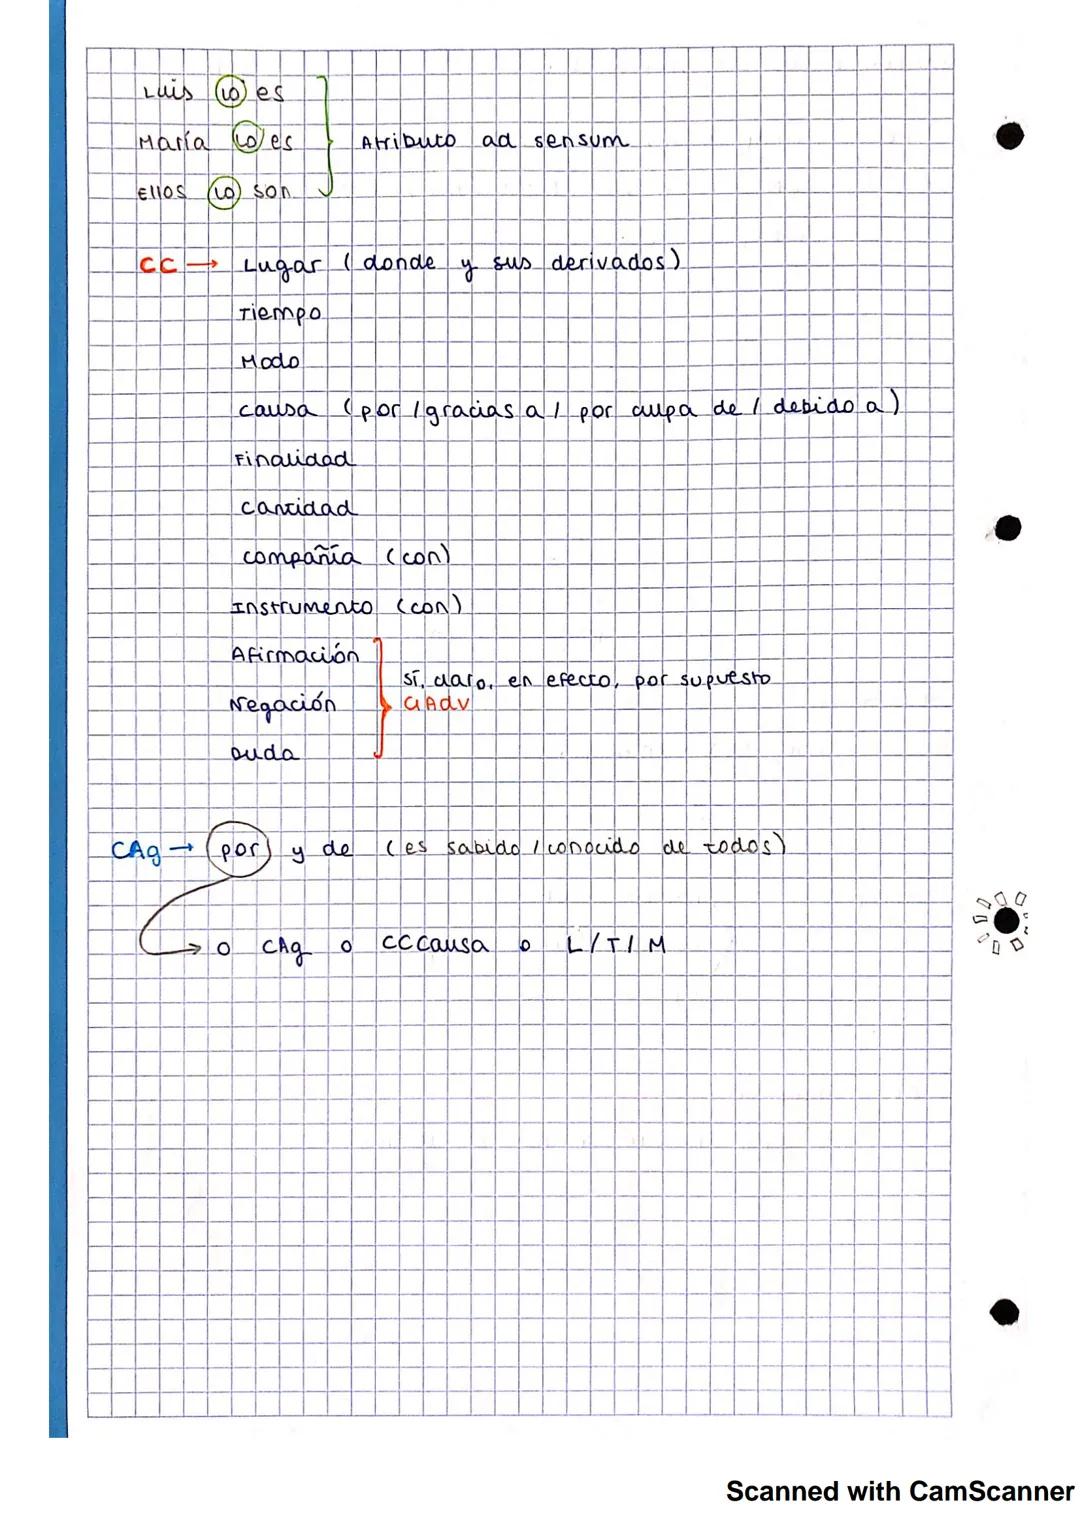 Luis lo es
María lo es
Ellos lo son
Atributo ad sensum
CC → Lugar (donde y sus derivados)
Tiempo
Modo
causa (por / gracias a / por culpa de / debido a)
Finalidad
cantidad
compañía (con)
Instrumento (con)
Afirmación
Negación
Duda
sí, claro, en efecto, por supuesto
GAdv
CAg → por y de (es sabido / conocido de todos)
→ o CAg o CCCausa o L/T/M
Scanned with CamScanner